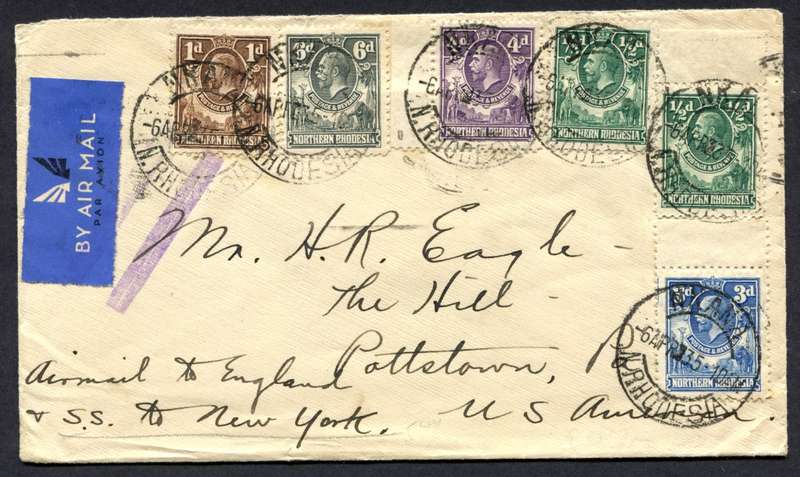 1d 1d
POSTAGE & REVENUE
NORTHERN RHODESIA
6d 6d
POSTAGE & REVENUE
NORTHERN RHODESIA
4d
POSTAGE & REVENUE
NORTHERN RHODESIA
½d
POSTAGE & REVENUE
NORTHERN RHODESIA
½d ½d
POSTAGE & REVENUE
NORTHERN RHODESIA
3d
POSTAGE & REVENUE
NORTHERN RHODESIA
NKANA
6 APR 35
N. RHODESIA
BY AIR MAIL
PAR AVION
Mr. H. R. Eagle -
The Hill -
Pottstown,
Airmail to England
& S.S. to New York. U S America.